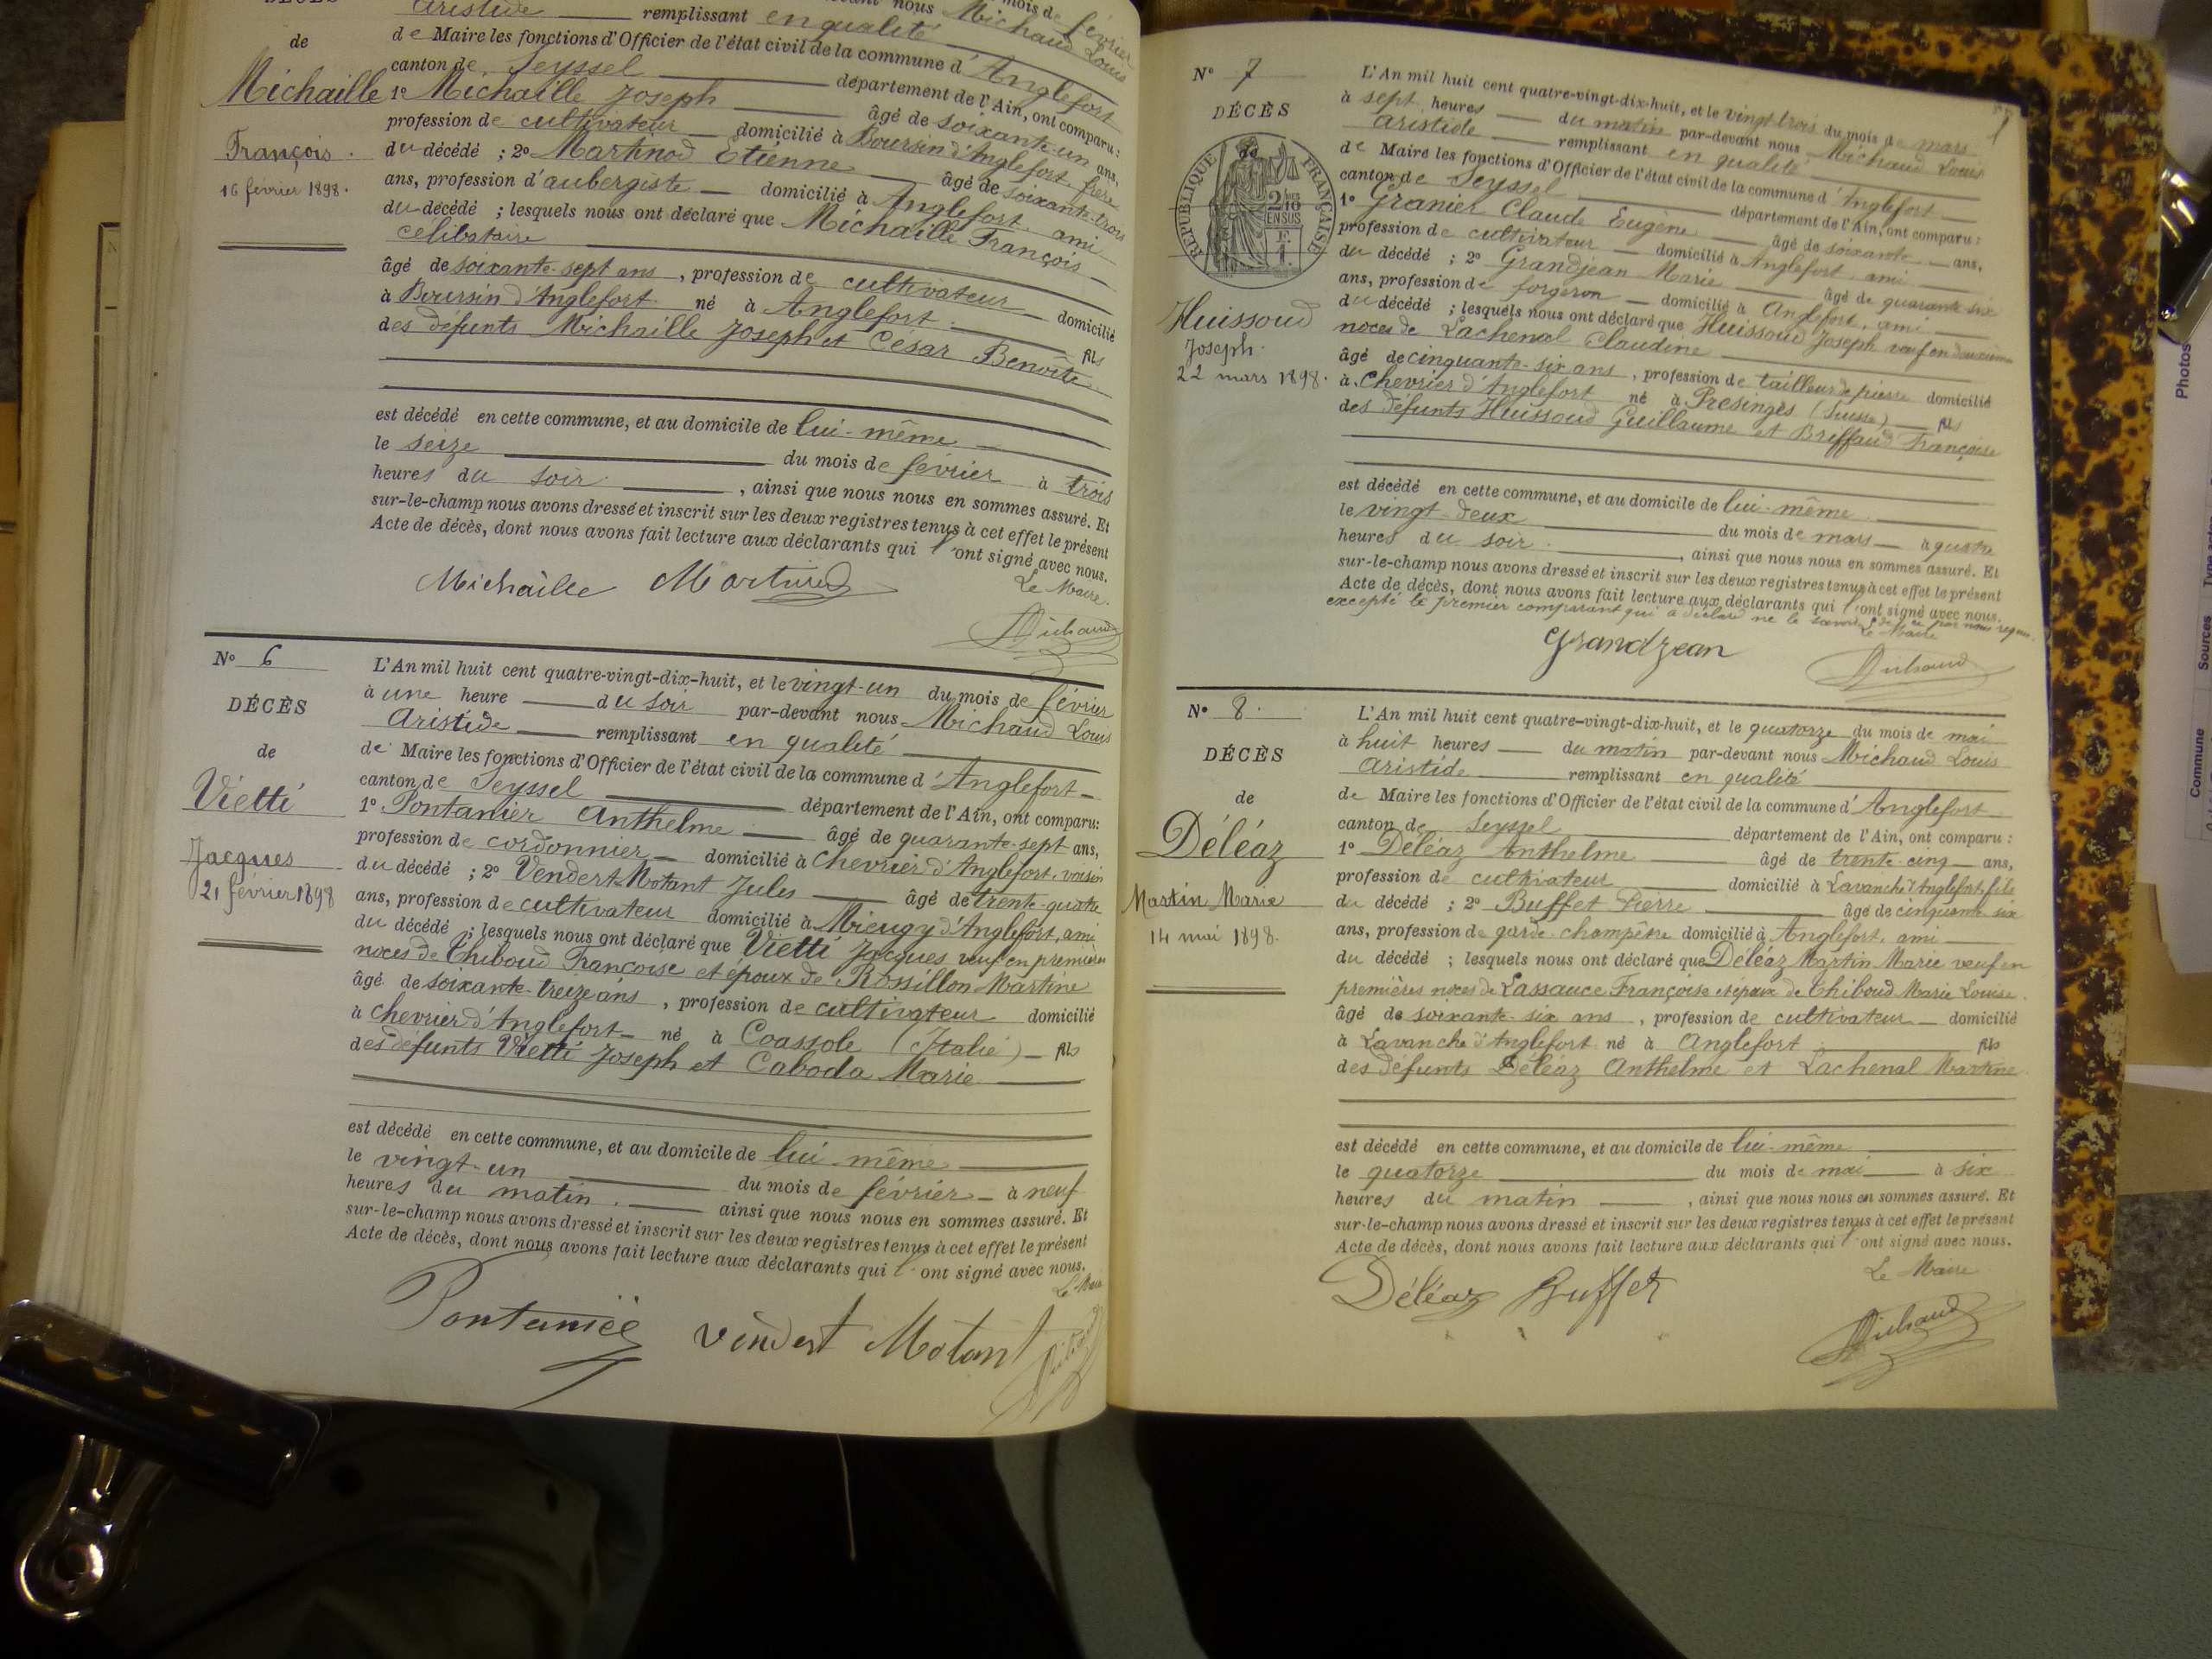 DÉCÈS
de
Michaille
François
16 février 1898.
mois de février
nous Michaud Louis
Aristide remplissant en qualité
de Maire les fonctions d'Officier de l'état civil de la commune d'Anglefort
canton de Seyssel département de l'Ain, ont comparu:
1º Michaille Joseph âgé de soixante-un ans,
profession de cultivateur domicilié à Boursin d'Anglefort, frère
du décédé ; 2º Martinod Etienne âgé de soixante-trois
ans, profession d'aubergiste domicilié à Anglefort, ami
du décédé ; lesquels nous ont déclaré que Michaille François
célibataire
âgé de soixante-sept ans, profession de cultivateur domicilié
à Boursin d'Anglefort né à Anglefort fils
des défunts Michaille Joseph et César Benoîte
est décédé en cette commune, et au domicile de lui-même
le seize du mois de février à trois
heures du soir, ainsi que nous nous en sommes assuré. Et
sur-le-champ nous avons dressé et inscrit sur les deux registres tenus à cet effet le présent
Acte de décès, dont nous avons fait lecture aux déclarants qui l'ont signé avec nous.
Le Maire.
Michaille Martinod
Michaud
Nº 6
DÉCÈS
de
Vietti
Jacques
21 février 1898
L'An mil huit cent quatre-vingt-dix-huit, et le vingt-un du mois de février
à une heure du soir par-devant nous Michaud Louis
Aristide remplissant en qualité
de Maire les fonctions d'Officier de l'état civil de la commune d'Anglefort
canton de Seyssel département de l'Ain, ont comparu:
1º Pontanier Anthelme âgé de quarante-sept ans,
profession de cordonnier domicilié à Chevrier d'Anglefort, voisin
du décédé ; 2º Vendert-Motant Jules âgé de trente-quatre
ans, profession de cultivateur domicilié à Mieugy d'Anglefort, ami
du décédé ; lesquels nous ont déclaré que Vietti Jacques veuf en premières
noces de Thiboud Françoise et époux de Rossillon Martine
âgé de soixante-treize ans, profession de cultivateur domicilié
à Chevrier d'Anglefort né à Coassole (Italie) fils
des défunts Vietti Joseph et Caboda Marie
est décédé en cette commune, et au domicile de lui-même
le vingt-un du mois de février à neuf
heures du matin. ainsi que nous nous en sommes assuré. Et
sur-le-champ nous avons dressé et inscrit sur les deux registres tenus à cet effet le présent
Acte de décès, dont nous avons fait lecture aux déclarants qui l'ont signé avec nous.
Le Maire
Pontanier Vendert Motant
Michaud
Nº 7
DÉCÈS
de
RÉPUBLIQUE FRANÇAISE
2/10
EN SUS
Huissoud
Joseph.
22 mars 1898.
L'An mil huit cent quatre-vingt-dix-huit, et le vingt-trois du mois de mars
à sept heures du matin par-devant nous Michaud Louis
Aristide remplissant en qualité
de Maire les fonctions d'Officier de l'état civil de la commune d'Anglefort
canton de Seyssel département de l'Ain, ont comparu:
1º Granier Claude Eugène âgé de soixante ans,
profession de cultivateur domicilié à Anglefort, ami
du décédé ; 2º Grandjean Marie âgé de quarante-six
ans, profession de forgeron domicilié à Anglefort, ami
du décédé ; lesquels nous ont déclaré que Huissoud Joseph veuf en deuxièmes
noces de Lachenal Claudine
âgé de cinquante-six ans, profession de tailleur de pierre domicilié
à Chevrier d'Anglefort né à Presinges (Suisse) fils
des défunts Huissoud Guillaume et Briffaud Françoise
est décédé en cette commune, et au domicile de lui-même
le vingt-deux du mois de mars à quatre
heures du soir., ainsi que nous nous en sommes assuré. Et
sur-le-champ nous avons dressé et inscrit sur les deux registres tenus à cet effet le présent
Acte de décès, dont nous avons fait lecture aux déclarants qui l'ont signé avec nous.
excepté le premier comparant qui a déclaré ne le savoir de ce par nous requis.
Le Maire
Grandjean
Michaud
Nº 8.
DÉCÈS
de
Déléaz
Martin Marie
14 mai 1898.
L'An mil huit cent quatre-vingt-dix-huit, et le quatorze du mois de mai
à huit heures du matin par-devant nous Michaud Louis
Aristide remplissant en qualité
de Maire les fonctions d'Officier de l'état civil de la commune d'Anglefort
canton de Seyssel département de l'Ain, ont comparu :
1º Déléaz Anthelme âgé de trente-cinq ans,
profession de cultivateur domicilié à Lavanche d'Anglefort, fils
du décédé ; 2º Buffet Pierre âgé de cinquante-six
ans, profession de garde-champêtre domicilié à Anglefort, ami
du décédé ; lesquels nous ont déclaré que Déléaz Martin Marie veuf en
premières noces de Lassauce Françoise et époux de Thiboud Marie Louise.
âgé de soixante-six ans, profession de cultivateur domicilié
à Lavanche d'Anglefort né à Anglefort fils
des défunts Déléaz Anthelme et Lachenal Martine
est décédé en cette commune, et au domicile de lui-même
le quatorze du mois de mai à six
heures du matin, ainsi que nous nous en sommes assuré. Et
sur-le-champ nous avons dressé et inscrit sur les deux registres tenus à cet effet le présent
Acte de décès, dont nous avons fait lecture aux déclarants qui l'ont signé avec nous.
Le Maire
Déléaz Buffet
Michaud
Photos
Commune Sources